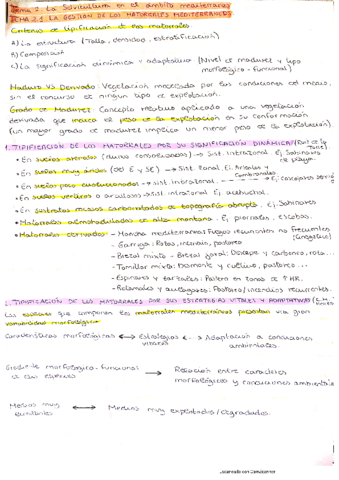 Tema 2. La Selvicultura en el ámbito mediterráneo
TEMA 2.1 LA GESTIÓN DE LOS MATORRALES MEDITERRÁNEOS
Criterios de tipificación de
A) La estructura (Talla, densidad, estratificación)
B) Composición
C) La significación dinámica y adaptativa (Nivel de madurez y tipo
morfológico - funcional)
Maduro VS Derivado: Vegetación por las condiciones del medio,
sin el concurso de ningún tipo de explotación.
Grado de Madurez: Concepto relativo aplicado a una vegetación
derivada que marca el peso de la explotación en su conformación
(un mayor grado de madurez implica un menor peso de la explotación).
1. TIPIFICACIÓN DE LOS MATORRALES POR SU SIGNIFICACIÓN DINÁMICA (Ruiz de la Torre)
• En suelos arenosos (dunas consolidadas) → Sist. intrazonal Ej Sabinares de playa.
• En suelos muy áridos (del E y SE) → Sist. zonal. Ej Artales y Cambronales
• En suelos poco evolucionados → sist. intrazonal. Ej
• En suelos vérticos o arcillosos → Sist. intrazonal Ej acebuchal.
• En sustratos rocosos carbonatados de topografía abrupta. Ej Sabinares
• Matorrales almohadillados de alta montaña. Ej piornales, escobas.
• Matorrales derivados: - Mancha mediterránea: Fuegos recurrentes no frecuentes (cinegético)
- Garriga: Rotas, incendios, pastoreo
- Brezal mixto - Brezal jaral: Descuaje y carboneo, rota...
- Tomillar mixto: Desmonte y cultivo, pastoreo...
- Espinares y zarzales: Pastoreo en zonas de ↑ HR.
- Retamales y aulagares: Pastoreo/incendios recurrentes.
2. TIPIFICACIÓN DE LOS MATORRALES POR SUS ESTRATEGIAS VITALES Y ADAPTATIVAS
Las especies que componen los matorrales mediterráneos presentan una gran
variabilidad morfológica
Características morfológicas ↔ Estrategias vitales ↔ Adaptación a condiciones
ambientales.
morfológico-funcional de las especies → Relación entre caracteres
morfológicos y condiciones ambientales
Medios muy ↔ Medios muy explotados/degradados.